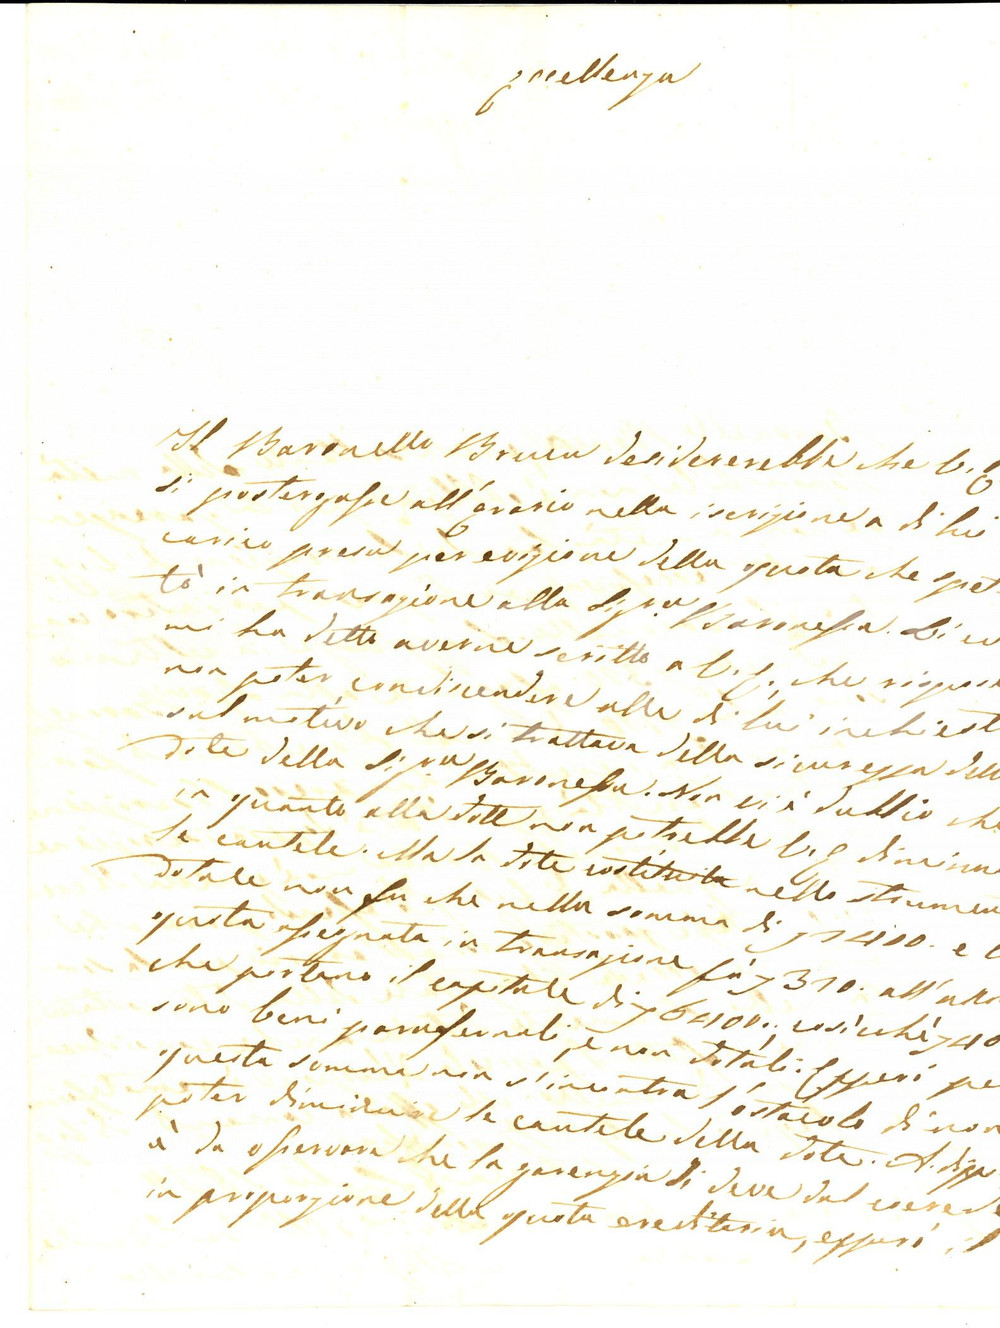 Eccellenza
Il Baronello Bruca desidererebbe che V. E.
si postergasse all'erario nella iscrizione a di lui
carico presa per evizione della quota che spet-
tò in transazione alla Sig.ra Baronessa. Di
mi ha detto averne scritto a V. E., che rispose
non poter condiscendere alle di lui inchieste
sul motivo che si trattava della sicurezza della
dote della Sig.ra Baronessa. Non vi è dubbio che
in quanto alla dote non potrebbe V. E. diminu
le cautele. Ma la dote costituita nello strumen
dotale non fu che nella somma di 2400. e
quota assegnata in transazione fu 310. all'
che portano il capitale di 6400., cosicché 40
sono beni parafernali, e non dotali. Epperò pe
questa somma non s'incontra l'ostacolo di non
poter diminuire le cautele della dote. A
è da osservare che la garenzia si deve dal coerede
in proporzione della quota ereditaria, epperò